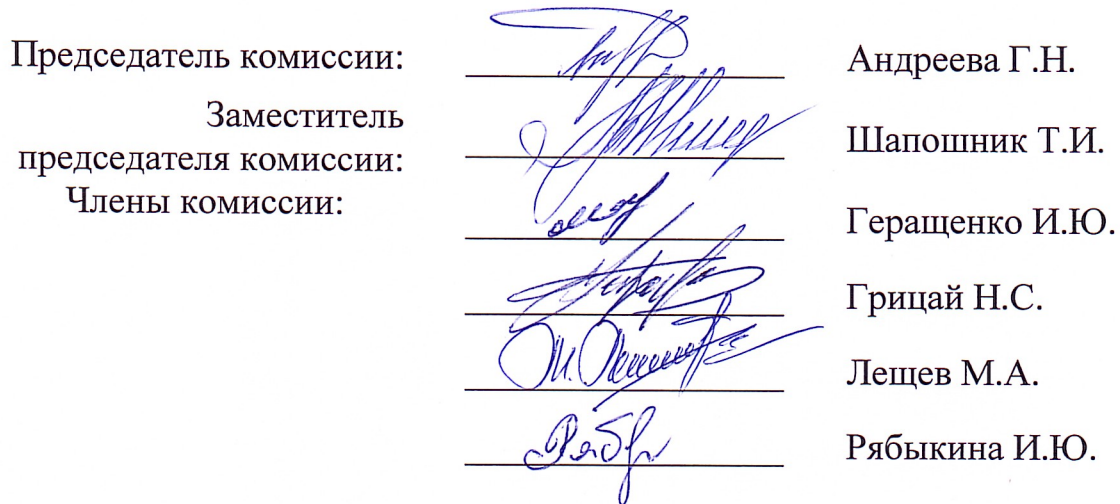 Председатель комиссии: Андреева Г.Н.
Заместитель
председателя комиссии: Шапошник Т.И.
Члены комиссии: Геращенко И.Ю.
Грицай Н.С.
Лещев М.А.
Рябыкина И.Ю.